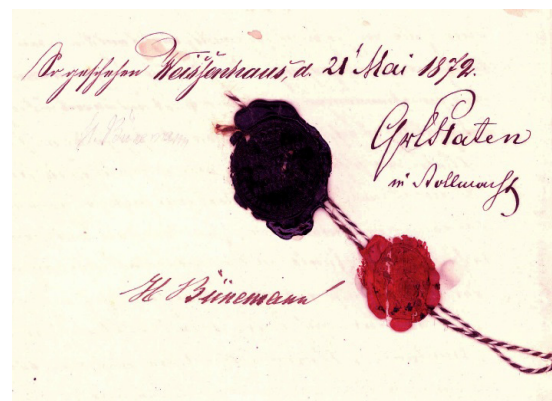 So geschehen Weissenhaus, d. 21 Mai 1872.
Platen
in Vollmacht
H Bünemann